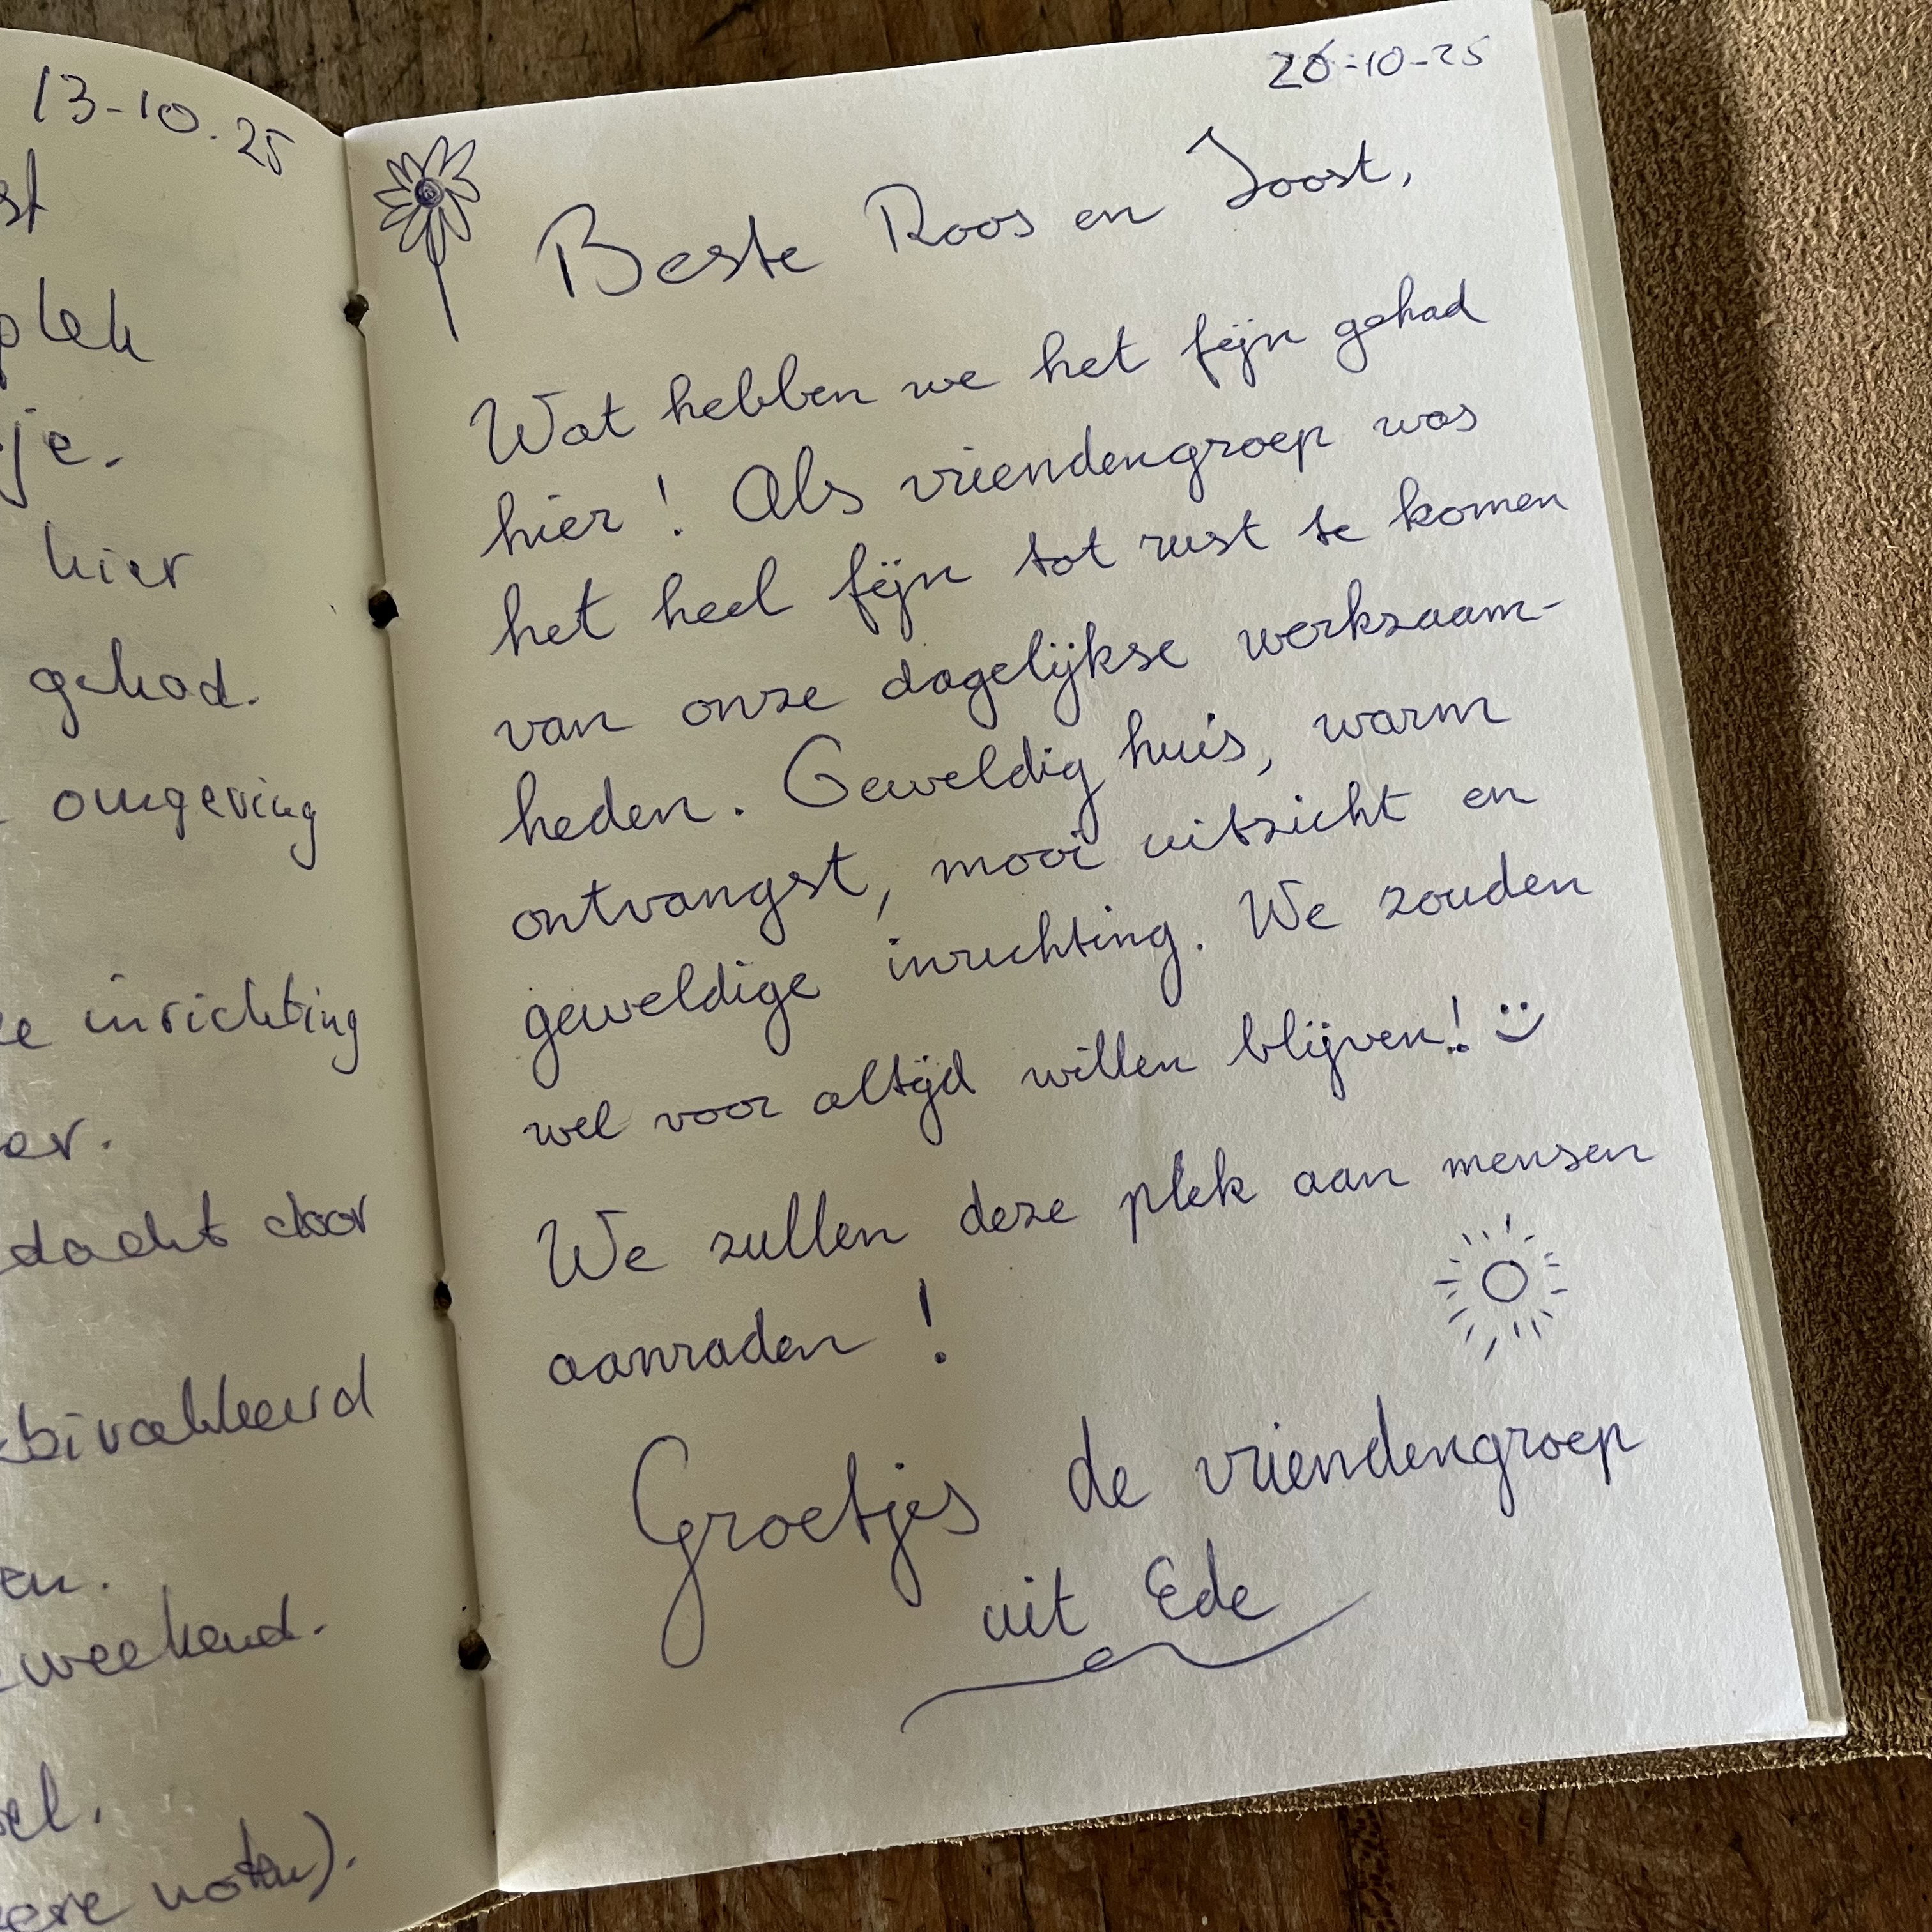 13-10-25
st
plek
je.
hier
gehad.
omgeving
inrichting
er.
dacht door
bivakkeerd
en.
weekend.
el.
noten).
26-10-25
Beste Roos en Joost,
Wat hebben we het fijn gehad
hier! Als vriendengroep was
het heel fijn tot rust te komen
van onze dagelijkse werkzaam-
heden. Geweldig huis, warm
ontvangst, mooi uitzicht en
geweldige inrichting. We zouden
wel voor altijd willen blijven! :)
We zullen deze plek aan mensen
aanraden!
Groetjes de vriendengroep
uit Ede